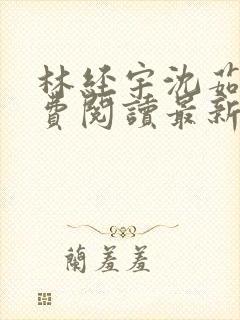 林經宇沈茹
費閱讀最新
蘭羞羞